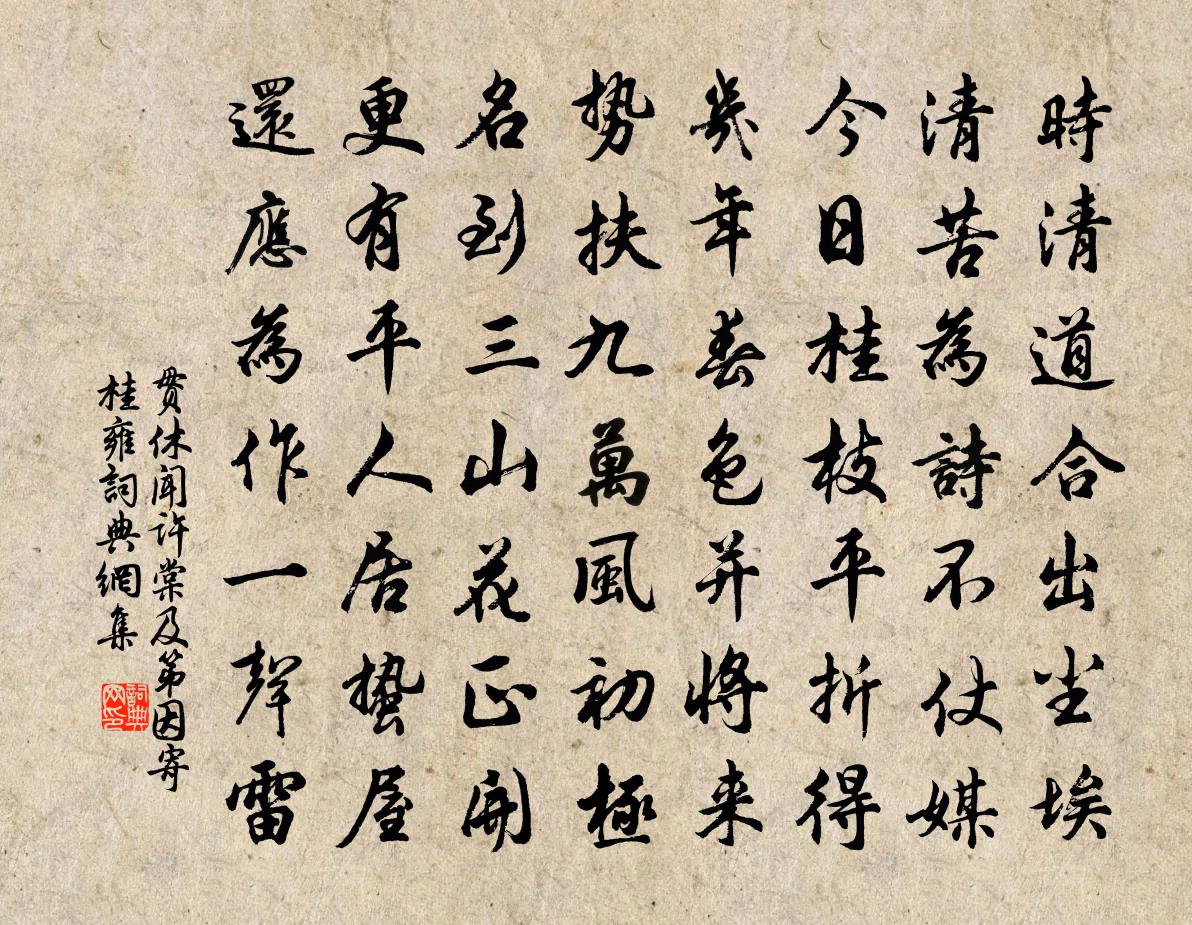 時清道合出尘埃
清苦為詩不仗媒
今日桂枝平折得
幾年春色并將来
勢扶九萬風初極
名到三山花正開
更有平人居蟄屋
還應為作一聲雷
贯休闻許棠及第因寄
桂雍詞典網集
詞典网印